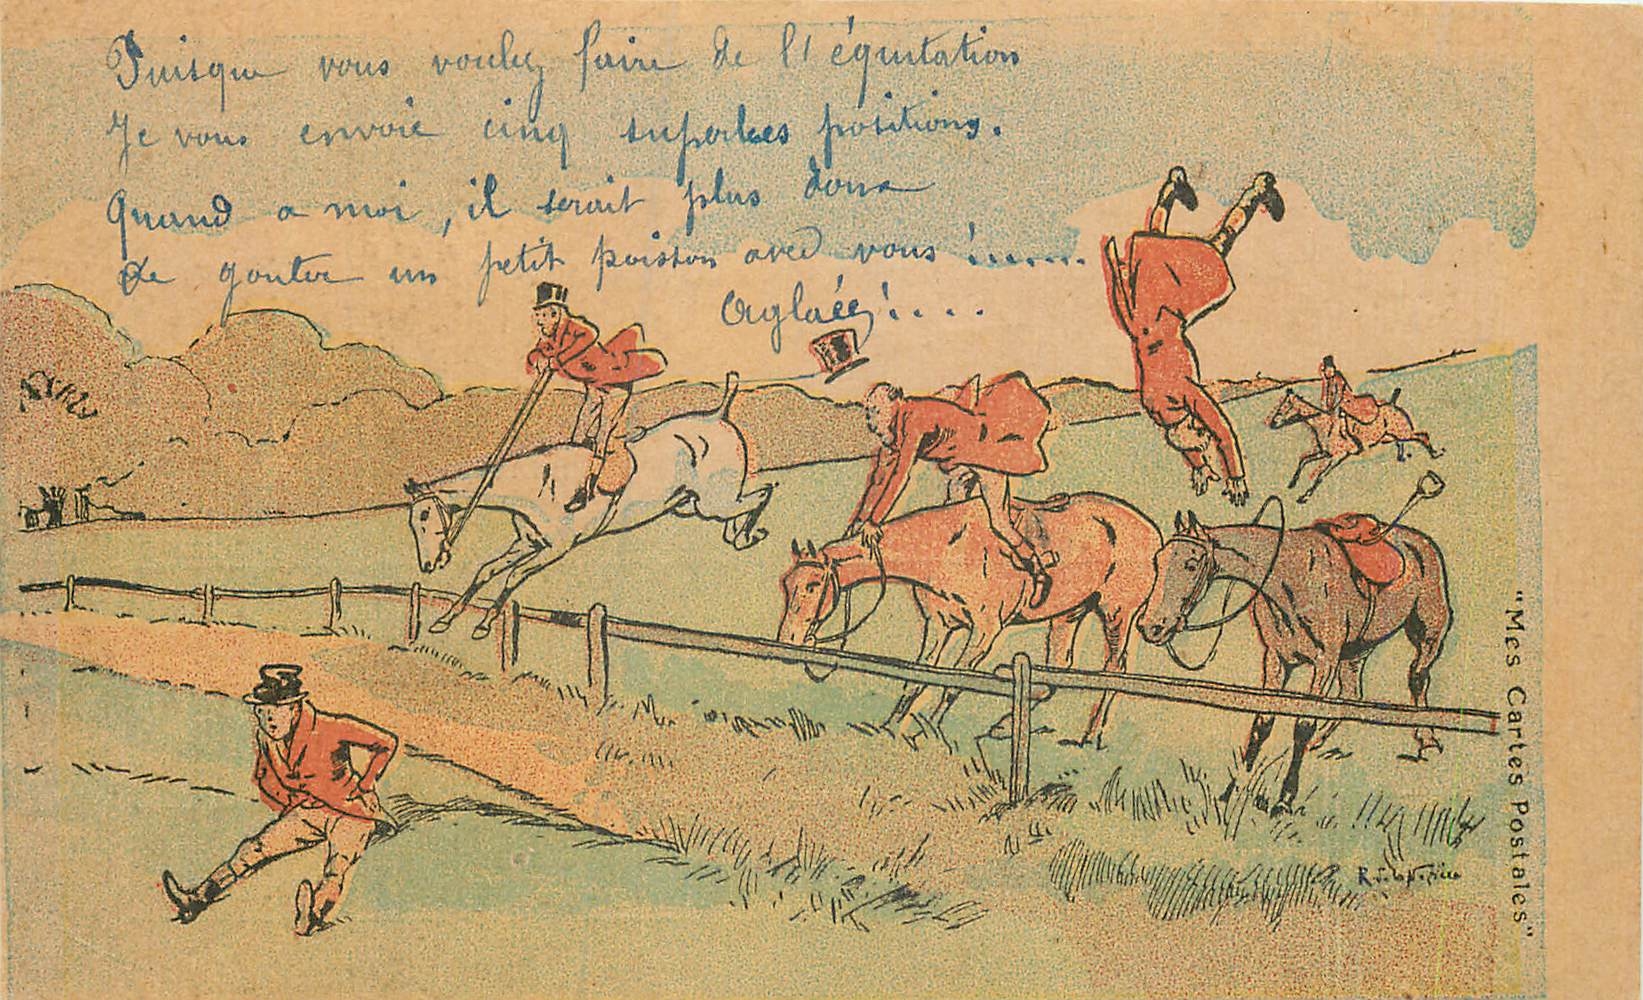 Puisque vous voulez faire de l'équitation
Je vous envoie cinq superbes positions.
Quand a moi, il serait plus doux
de gouter un petit poisson avec vous !......
Aglaée !....
"Mes Cartes Postales"